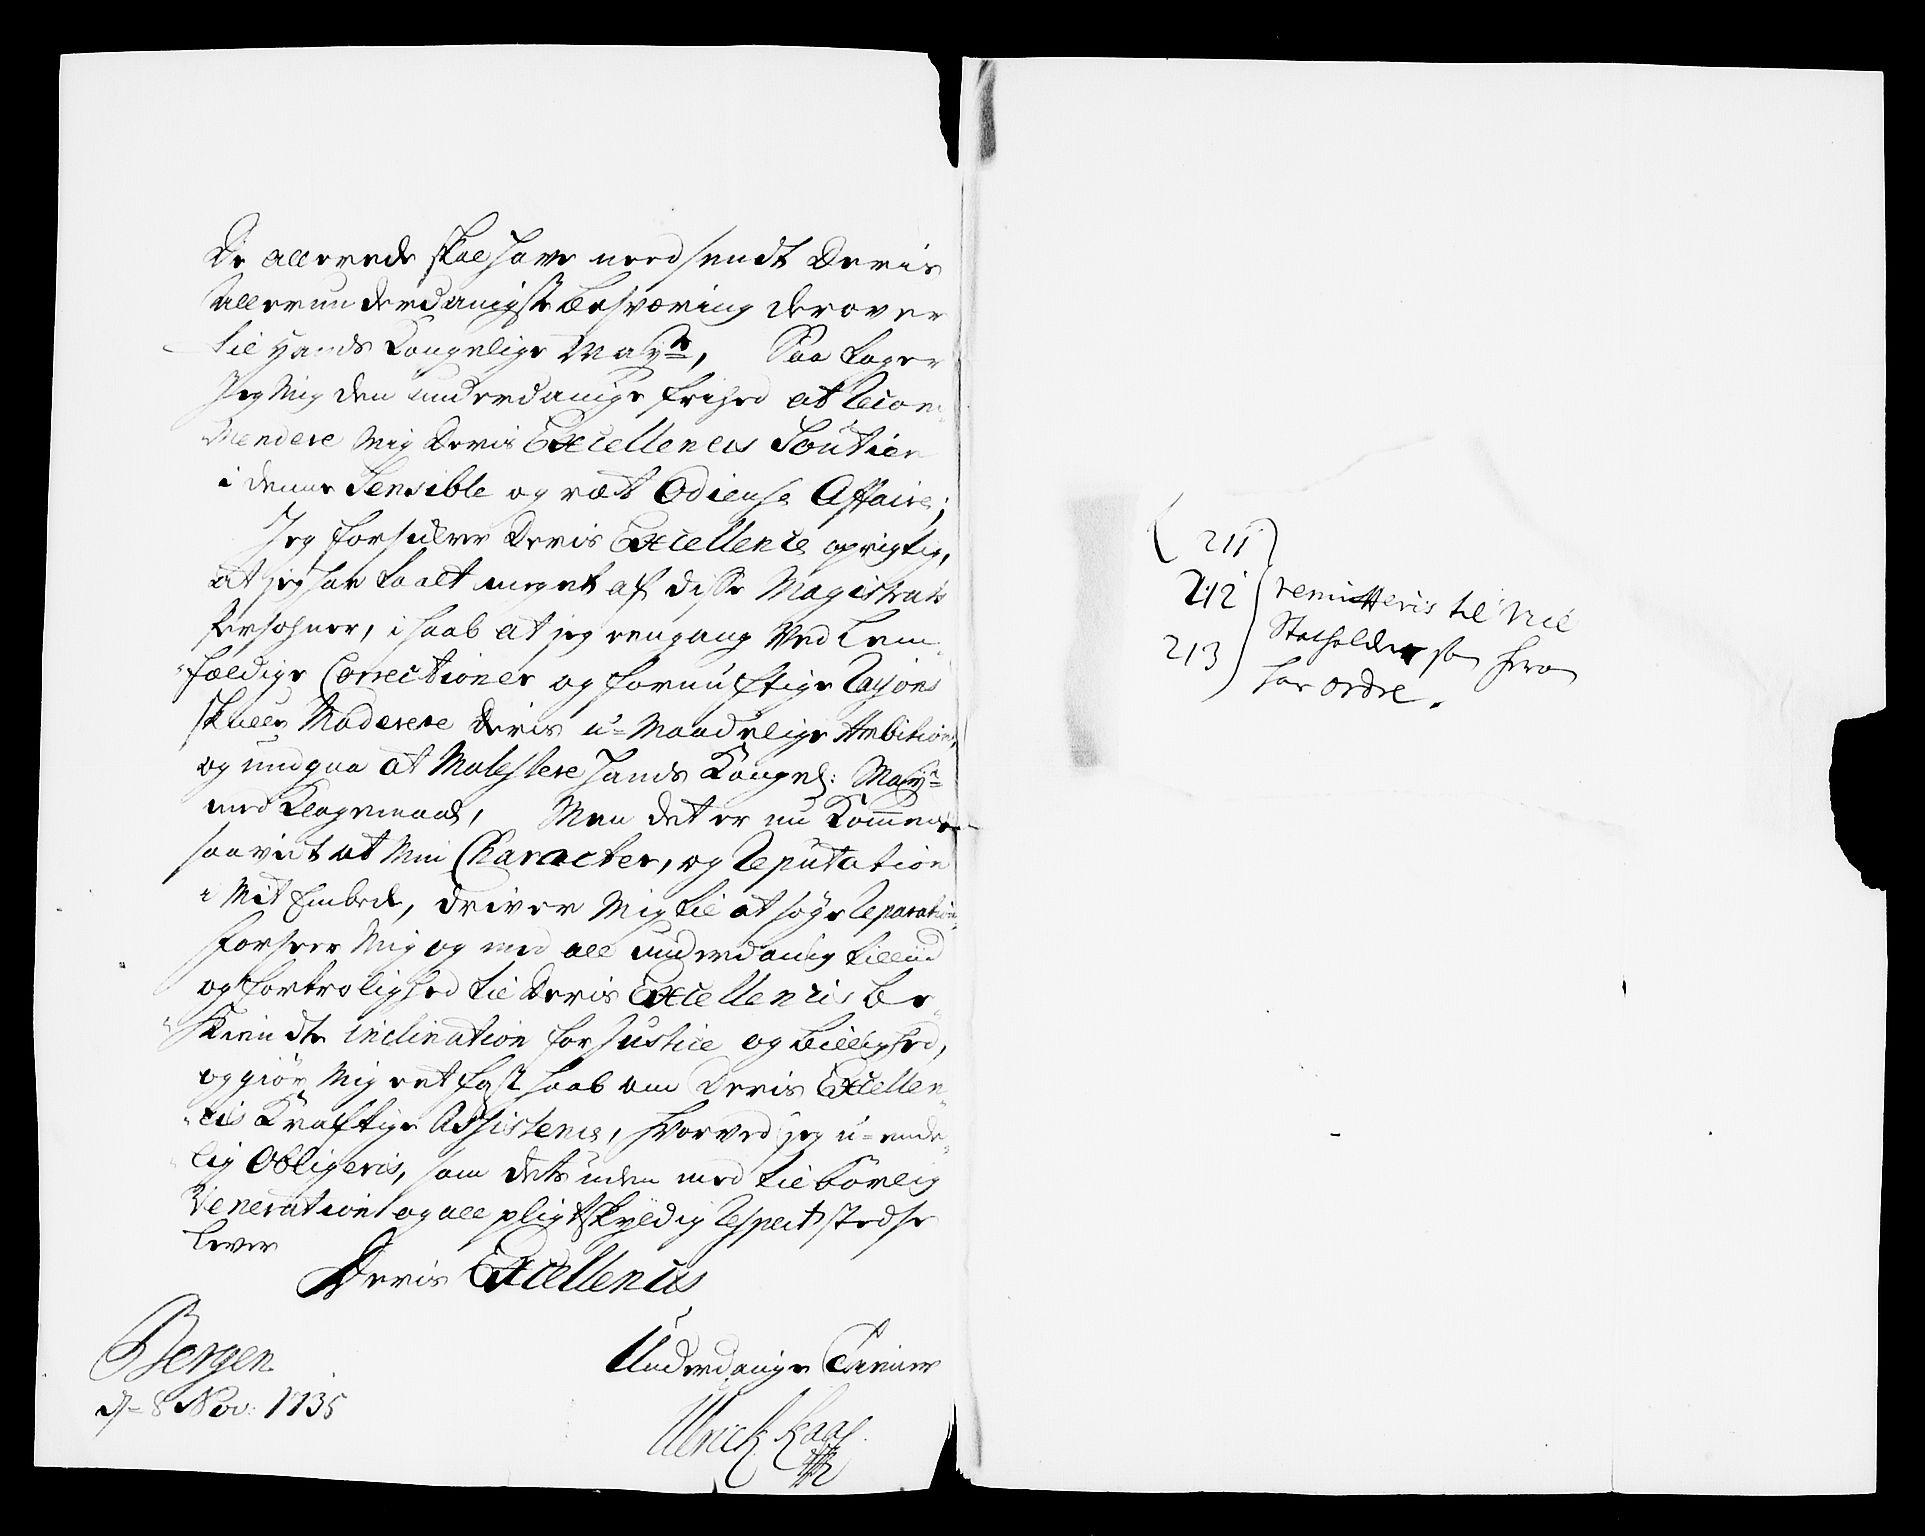 De allerede skal have nedsendt Deris
Allerunderdanigste besværing derover
til Hands Kongelige May:ts, Saa tager
Jeg Mig den underdanige frihed at Recom-
mendere Mig Deris Excellences Soutien
i denne Sensible og ræt Odieuse Affaire;
Jeg forsickrer Deris Excellence oprigtig,
at jeg har taalt meget af disse Magistrats
Persohner, i haab at jeg eengang ved Lem-
fældige Correctioner og fornuftige Raisons
skulle Moderere deris u-maadelige Ambition,
og undgaa at Molestere Hands Kongel: May:ts
med Klagemaal, Men det er nu Kommen
saavit at Min Character, og Reputation
i Mit Embede, driver Mig til at søge Reparation,
forseer Mig og med all underdanig tillid
og fortrolighed til Deris Excellences be-
kiendte inclination for Justice og billighed,
og giør Mig ret fast haab om Deris Excellen-
ces Kraftige Assistence, hvorved jeg u-ende-
lig Obligeris, som dets uden med tilbørlig
Veneration og all pligtskyldig Respect stedse
lever
Deris Excellences
Bergen
d- 8 Nov: 1735
Underdanige Tiener
Ulrick Kaas
211
212 remitteris til Vice
213 Statholderen som herom
har ordre.